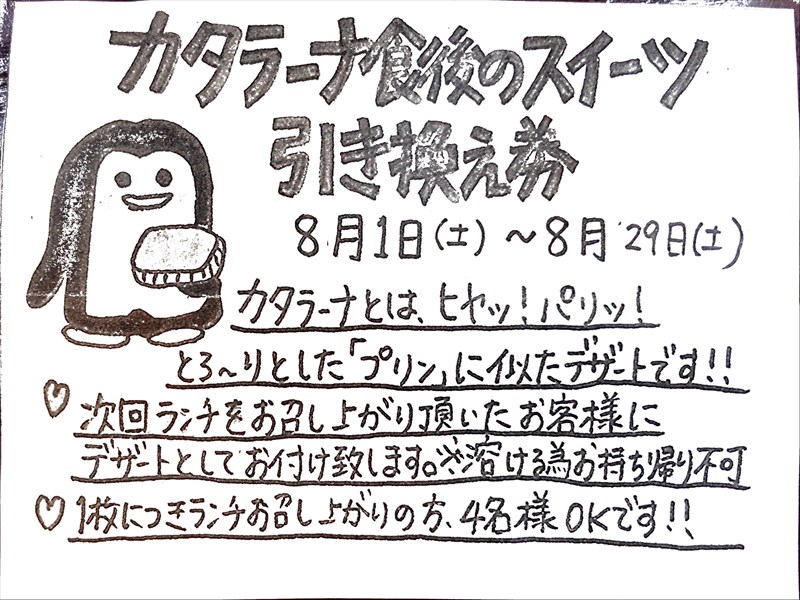 カタラーナ食後のスイーツ
引き換え券
8月1日(土)～8月29日(土)
カタラーナとは、ヒヤッ!パリッ!
とろ～りとした「プリン」に似たデザートです!!
♡次回ランチをお召し上がり頂いたお客様に
デザートとしてお付け致します。※溶ける為お持ち帰り不可
♡1枚につきランチお召し上がりの方、4名様OKです!!